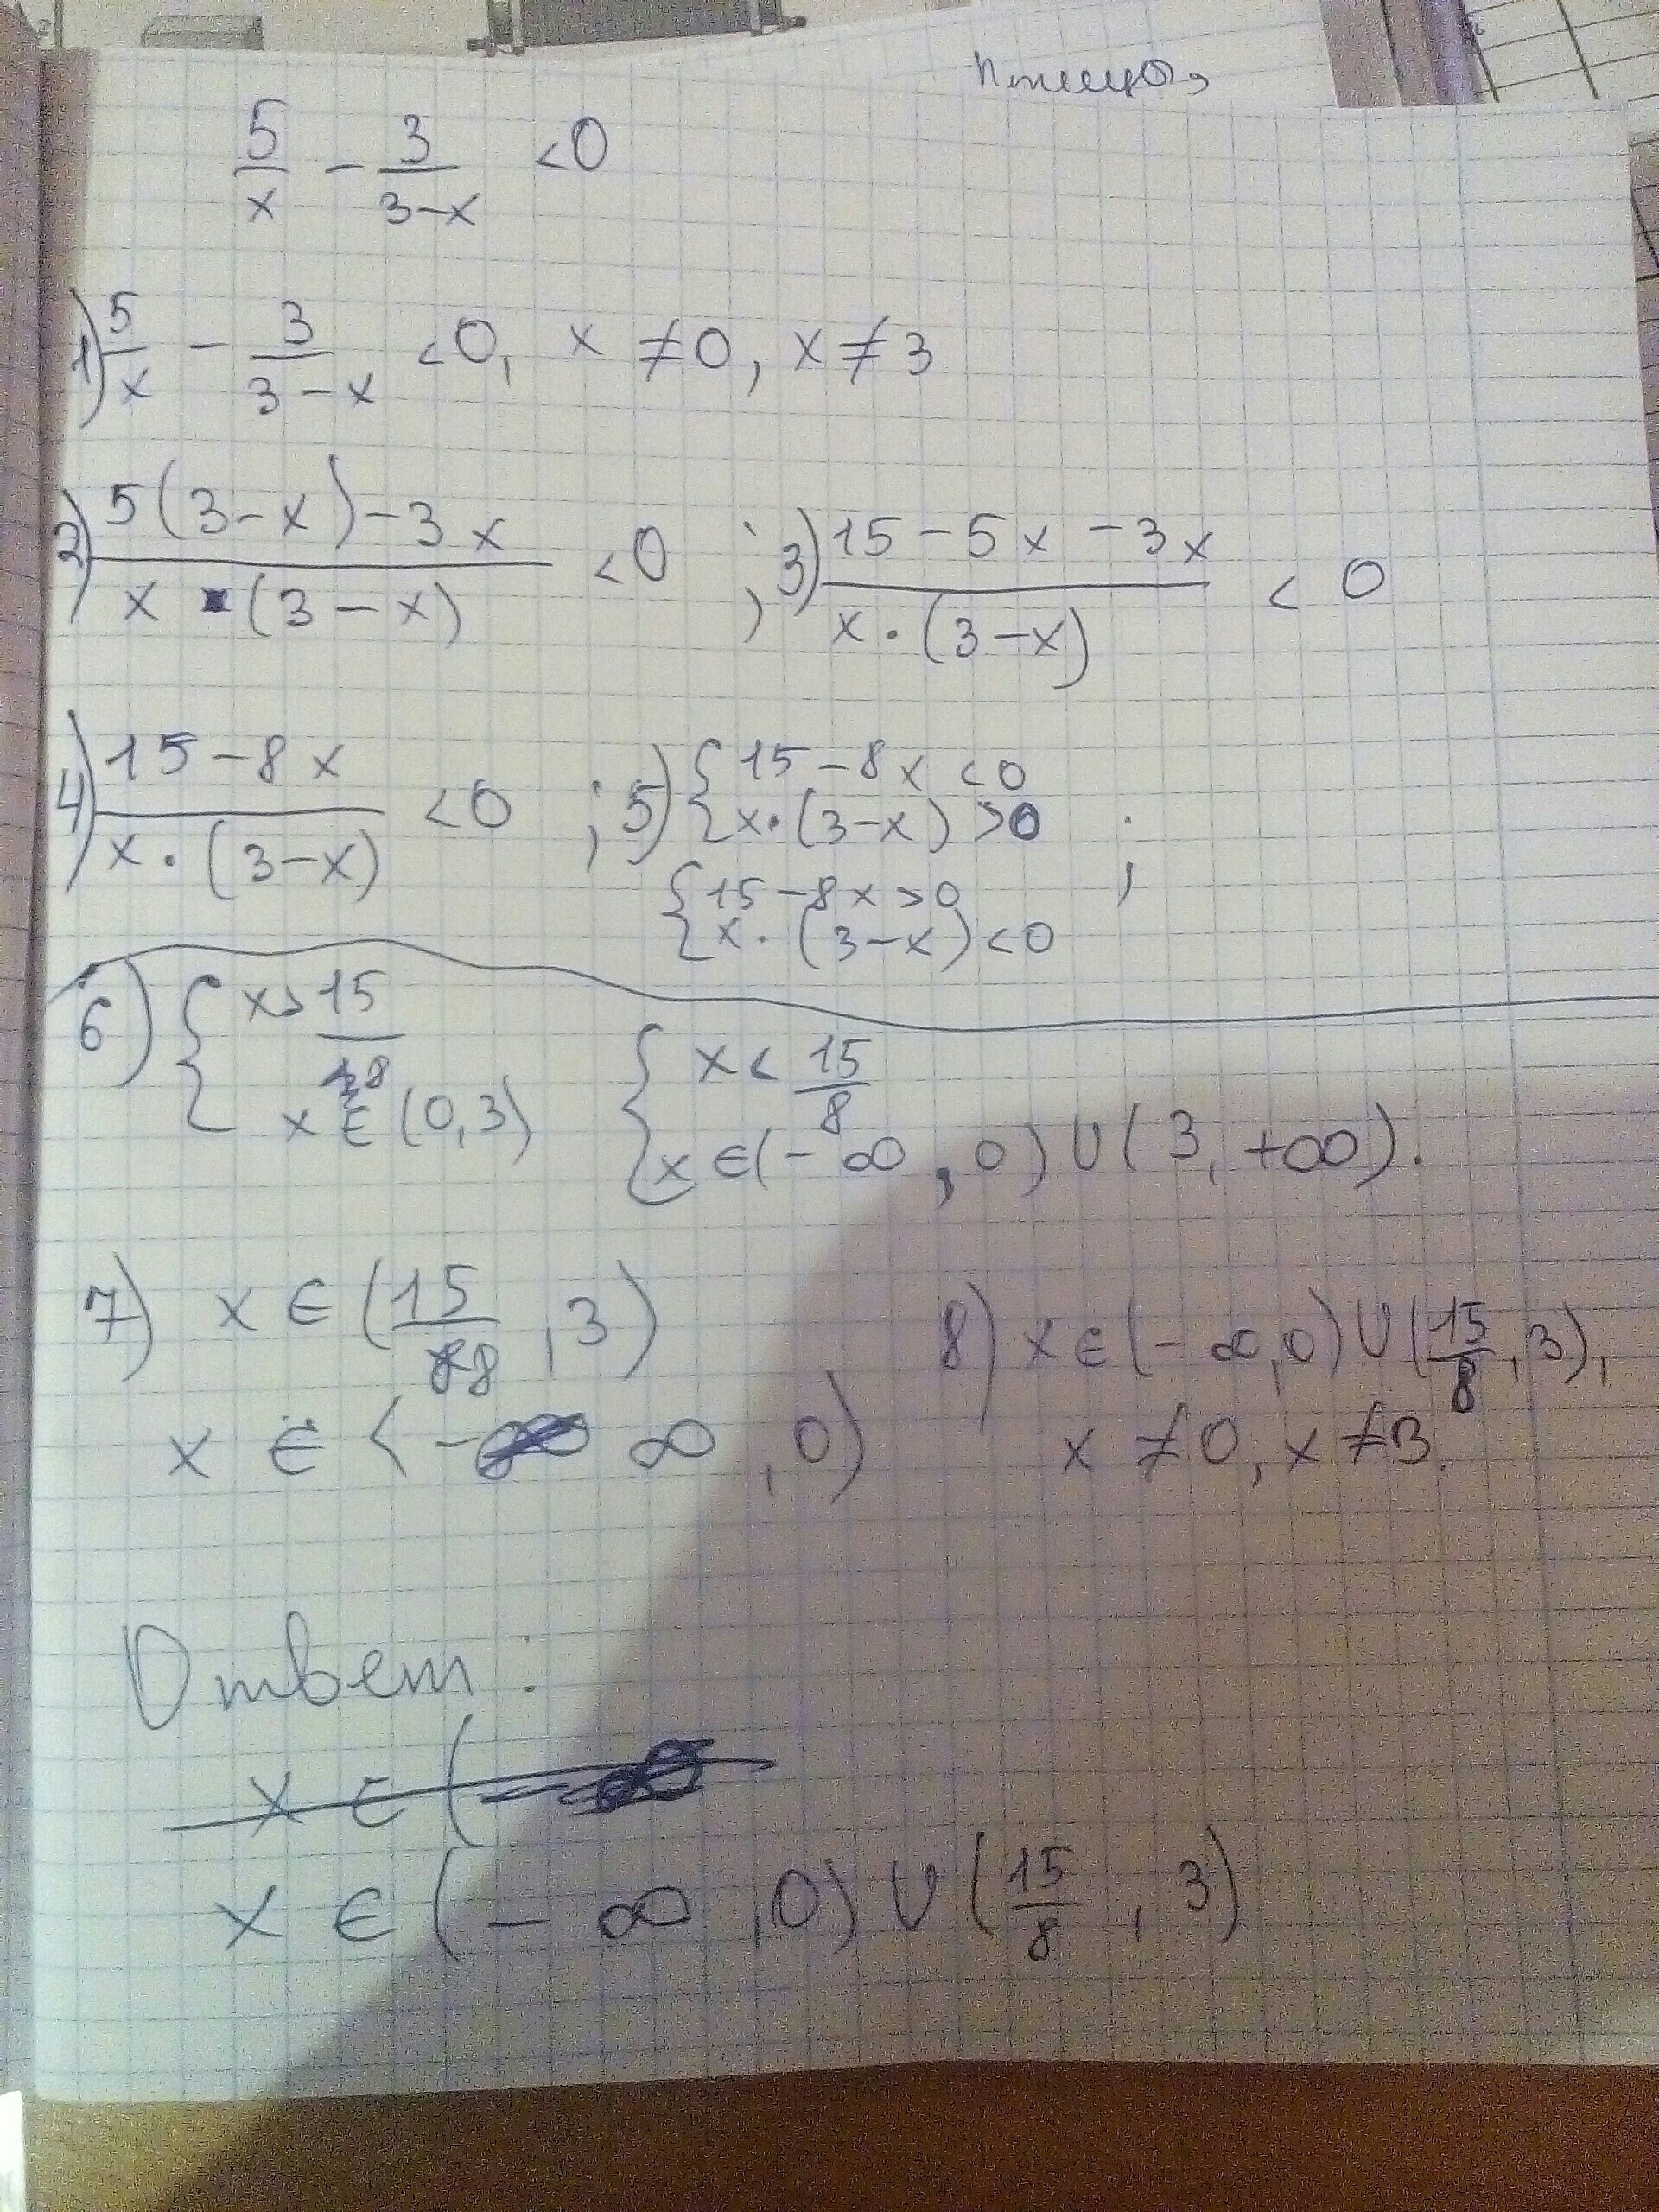 5/x - 3/(3-x) <0
1) 5/x - 3/(3-x) <0, x ≠0, x≠3
2) (5(3-x)-3x)/(x·(3-x)) <0 ; 3) (15-5x-3x)/(x·(3-x)) < 0
4) (15-8x)/(x·(3-x)) <0 ; 5) { 15-8x <0
x·(3-x) >0 ;
{ 15-8x >0
x·(3-x) <0
6) { x> 15/8
x ∈ (0,3)
{ x< 15/8
x ∈(-∞, 0) ∪ (3, +∞).
7) x ∈ (15/8, 3)
x ∈ (-∞, 0)
8) x ∈ (-∞,0) ∪ (15/8, 3),
x ≠0, x ≠3.
Ответ:
x ∈ (-∞, 0) ∪ (15/8, 3)